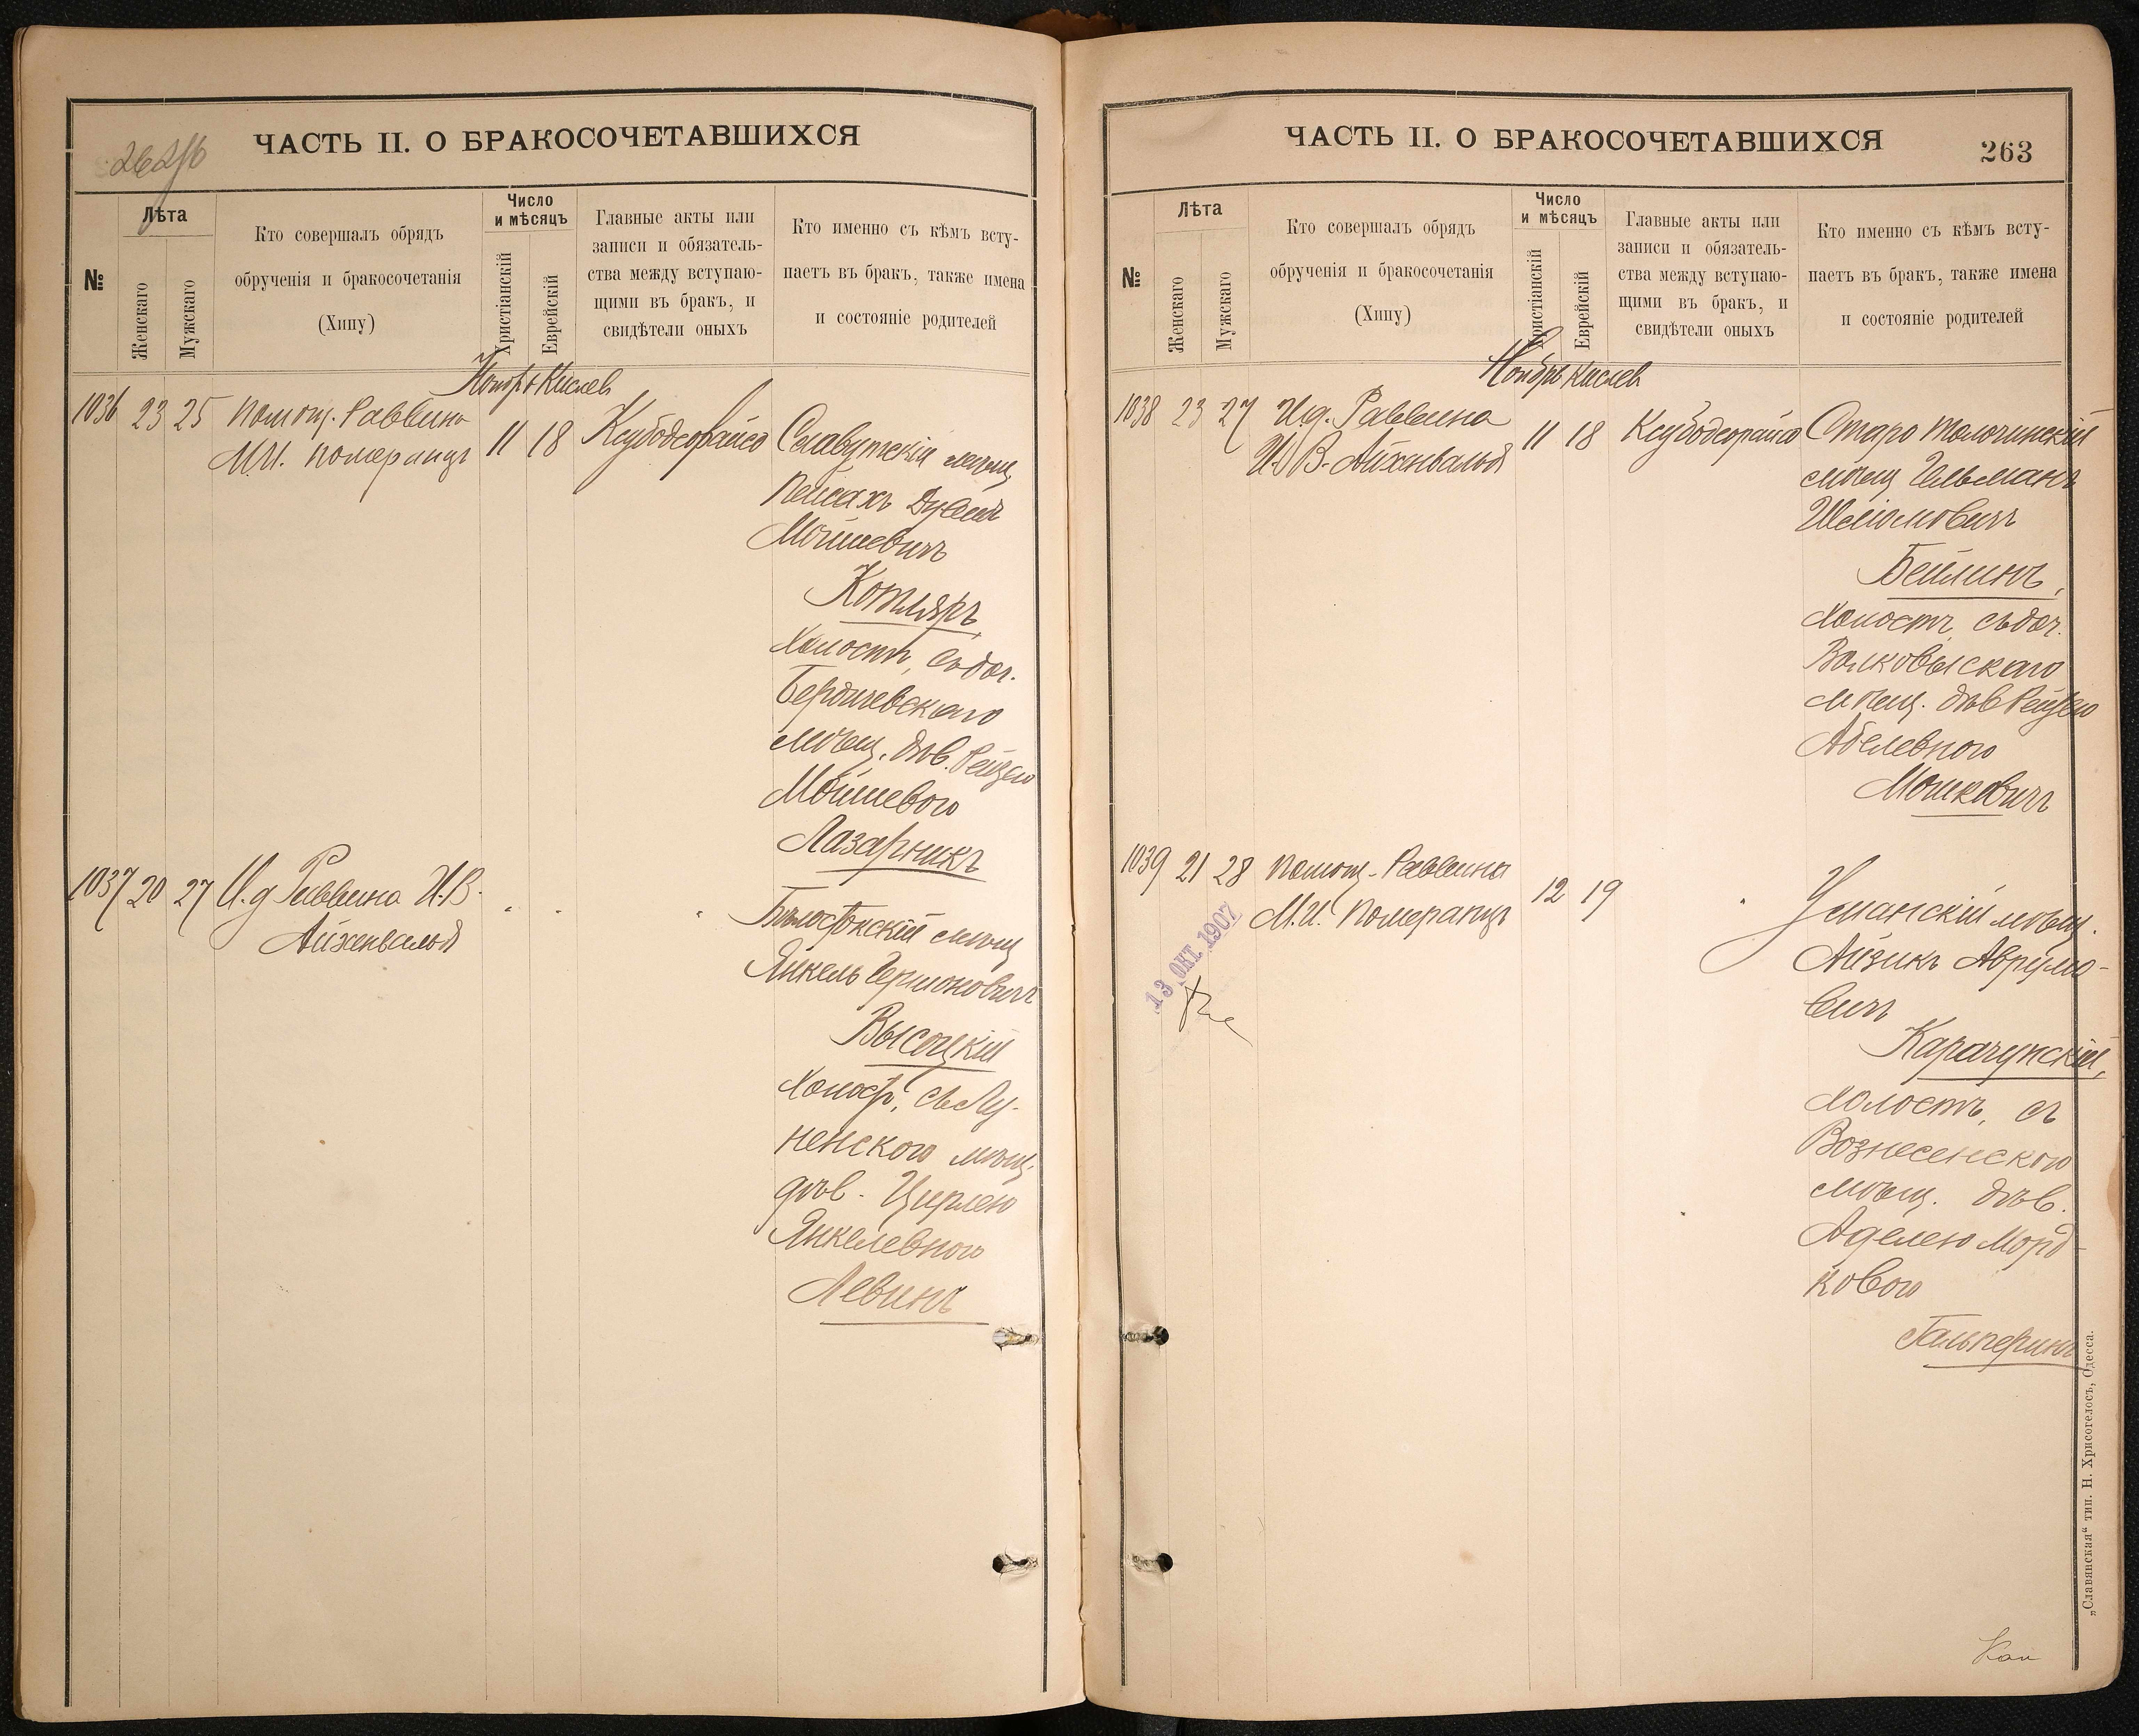 262/б
ЧАСТЬ II. О БРАКОСОЧЕТАВШИХСЯ
№
Лѣта
Женскаго
Мужскаго
Кто совершалъ обрядъ
обрученія и бракосочетанія
(Хипу)
Число
и мѣсяцъ
Христіанскій
Еврейскій
Главные акты или
записи и обязатель-
ства между вступаю-
щими въ бракъ, и
свидѣтели оныхъ
Кто именно съ кѣмъ всту-
паетъ въ бракъ, также имена
и состояніе родителей
Ноябрь Кислев
1036 23 25 Помощ. Раввина
М.И. Померанцъ
11 18 Ксубодеорайсо
Славутскій мѣщ.
Пейсахъ Дувидъ
Мошевичъ
Котляръ,
холостъ, съ доч.
Бердичевскаго
мѣщ. дѣв. Рейзею
Мошевою
Лазарникъ
1037 20 27 И.д Раввина И.В.
Айхенвальд
" " "
Бѣлостокскій мѣщ
Янкель Гершоновичъ
Высоцкій
холост, съ Лу-
ненского мѣщ.
дѣв. Цирлею
Янкелевною
Левинъ
ЧАСТЬ II. О БРАКОСОЧЕТАВШИХСЯ
263
№
Лѣта
Женскаго
Мужскаго
Кто совершалъ обрядъ
обрученія и бракосочетанія
(Хипу)
Число
и мѣсяцъ
Христіанскій
Еврейскій
Главные акты или
записи и обязатель-
ства между вступаю-
щими въ бракъ, и
свидѣтели оныхъ
Кто именно съ кѣмъ всту-
паетъ въ бракъ, также имена
и состояніе родителей
Ноябрь Кислев
1038 23 27 И.д. Раввина
И. В. Айхенвальд
11 18 Ксубодеорайсо
Старо Толочинскій
мѣщ Гельманъ
Шеліомовичъ
Бейлинъ,
холостъ, съ доч.
Волковыскаго
мѣщ. дѣв Рейзею
Абелевною
Мошковичъ
1039 21 28 Помощ. Раввина
М.И. Померанцъ
12 19 "
Уманскій мѣщ.
Айзикъ Аврумо-
вичъ
Карачунскій,
холостъ, съ
Вознесенскою
мѣщ. дѣв.
Аделею Морд-
ковою
Гальперинъ
13 ОКТ. 1907
„Славянская“ тип. Н. Хрисогелосъ, Одесса.